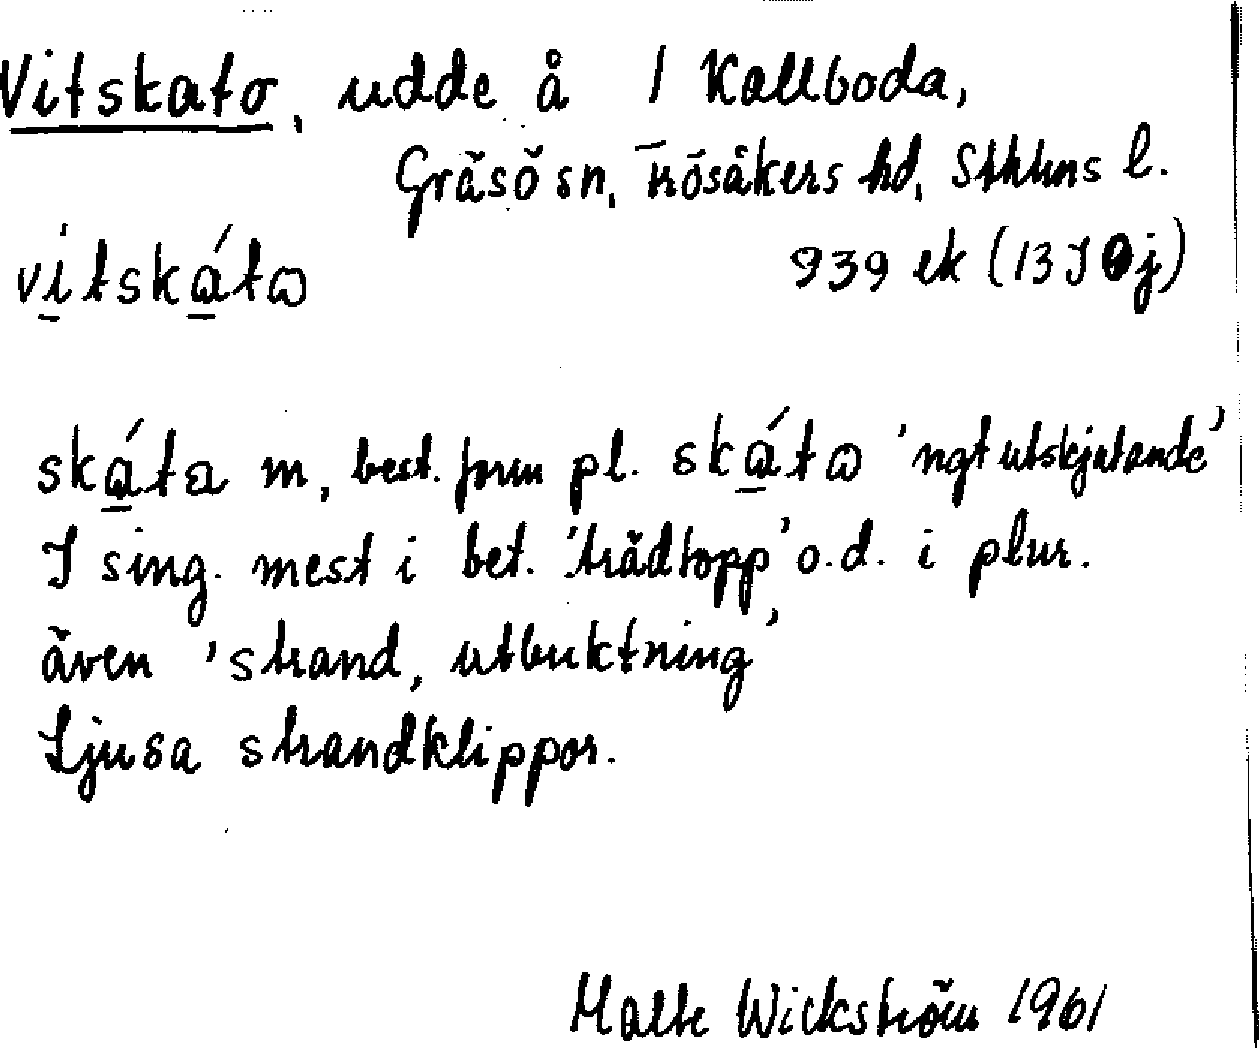 Vitskato, udde å 1 Kallboda,
Gräsö sn, Frösåkers hd, Sthlms l.
vi̱tska̱´tɷ 939 ek (13 I 0j)
ska̱´ta m, best. form pl. ska̱´tɷ 'ngt utskjutande'
I sing. mest i bet. 'trädtopp' o.d. i plur.
även 'strand, utbuktning'
Ljusa strandklippor.
Malte Wickström 1961